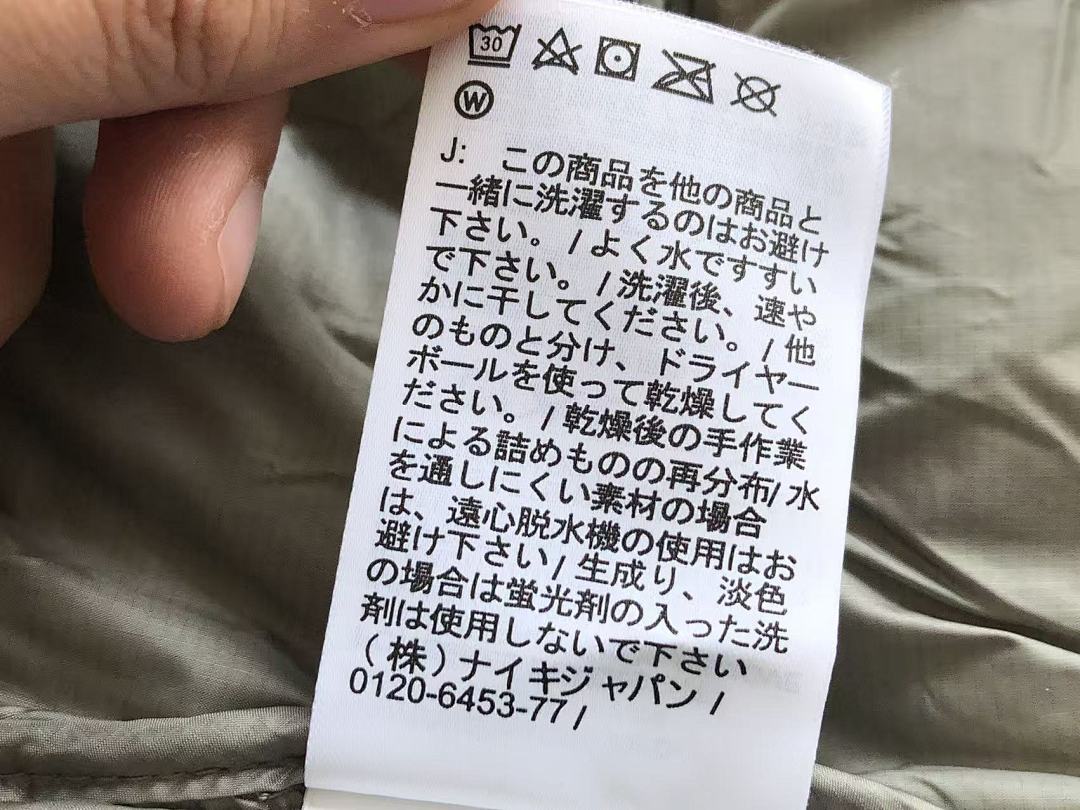 30
W
J: この商品を他の商品と
一緒に洗濯するのはお避け
下さい。/よく水ですすい
で下さい。/洗濯後、速や
かに干してください。/他
のものと分け、ドライヤー
ボールを使って乾燥してく
ださい。/乾燥後の手作業
による詰めものの再分布/水
を通しにくい素材の場合
は、遠心脱水機の使用はお
避け下さい/生成り、淡色
の場合は蛍光剤の入った洗
剤は使用しないで下さい
(株)ナイキジャパン/
0120-6453-77/